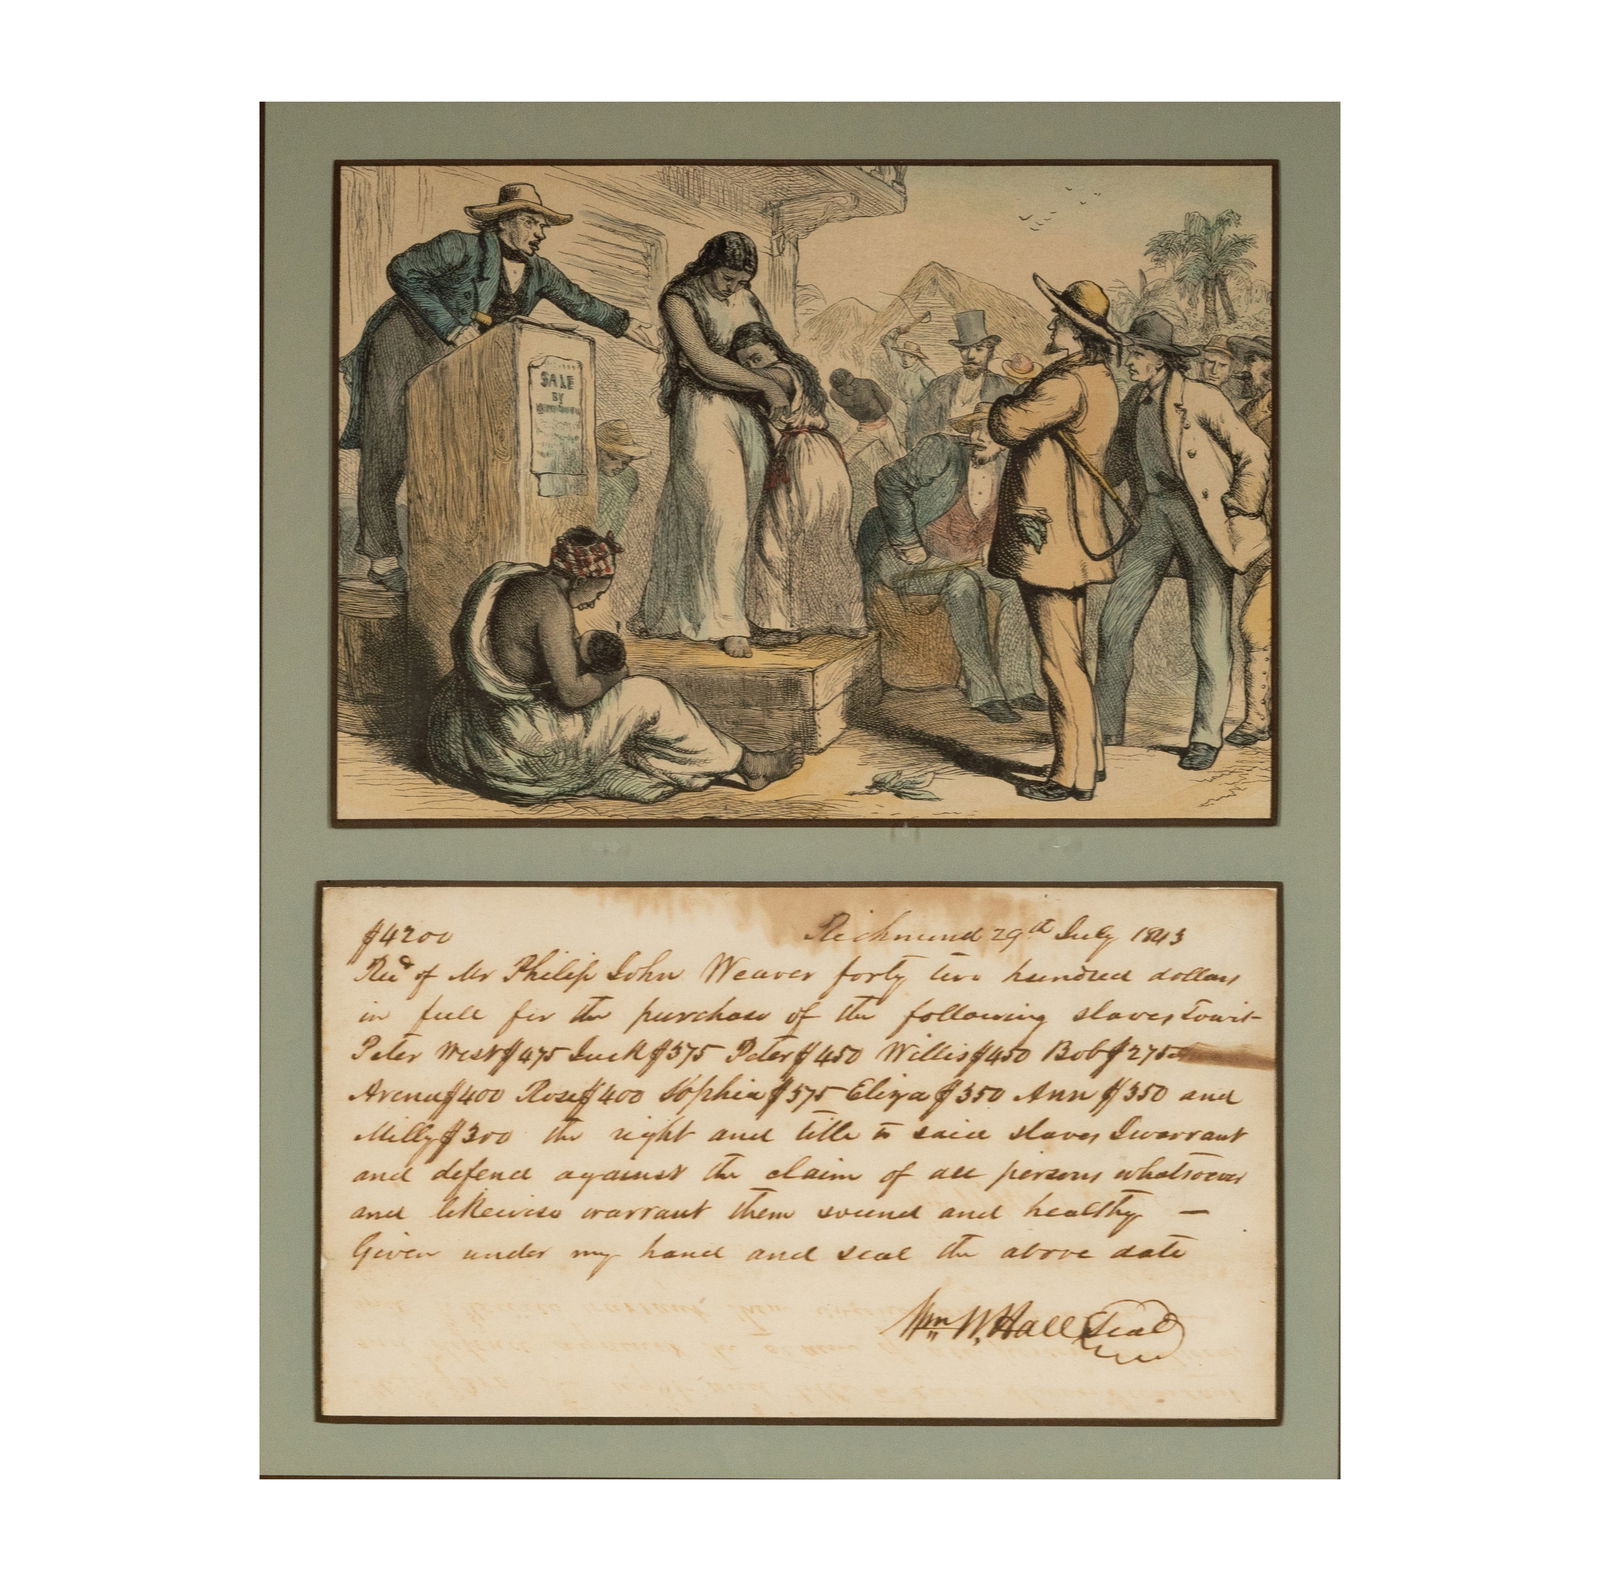 SALE
BY
$4200 Richmond 29th July 1843
Recd of Mr Philip John Weaver forty two hundred dollars
in full for the purchase of the following slaves Towit
Peter West $475 Jack $375 Peter $450 Willis $450 Bob $275
$400 Rose $400 Sophia $375 Eliza $350 Ann $350 and
Milly $300 the right and title to said slaves I warrant
and defend against the claim of all persons whatsoever
and likewise warrant them sound and healthy —
Given under my hand and seal the above date
Wm W. Hall Seal